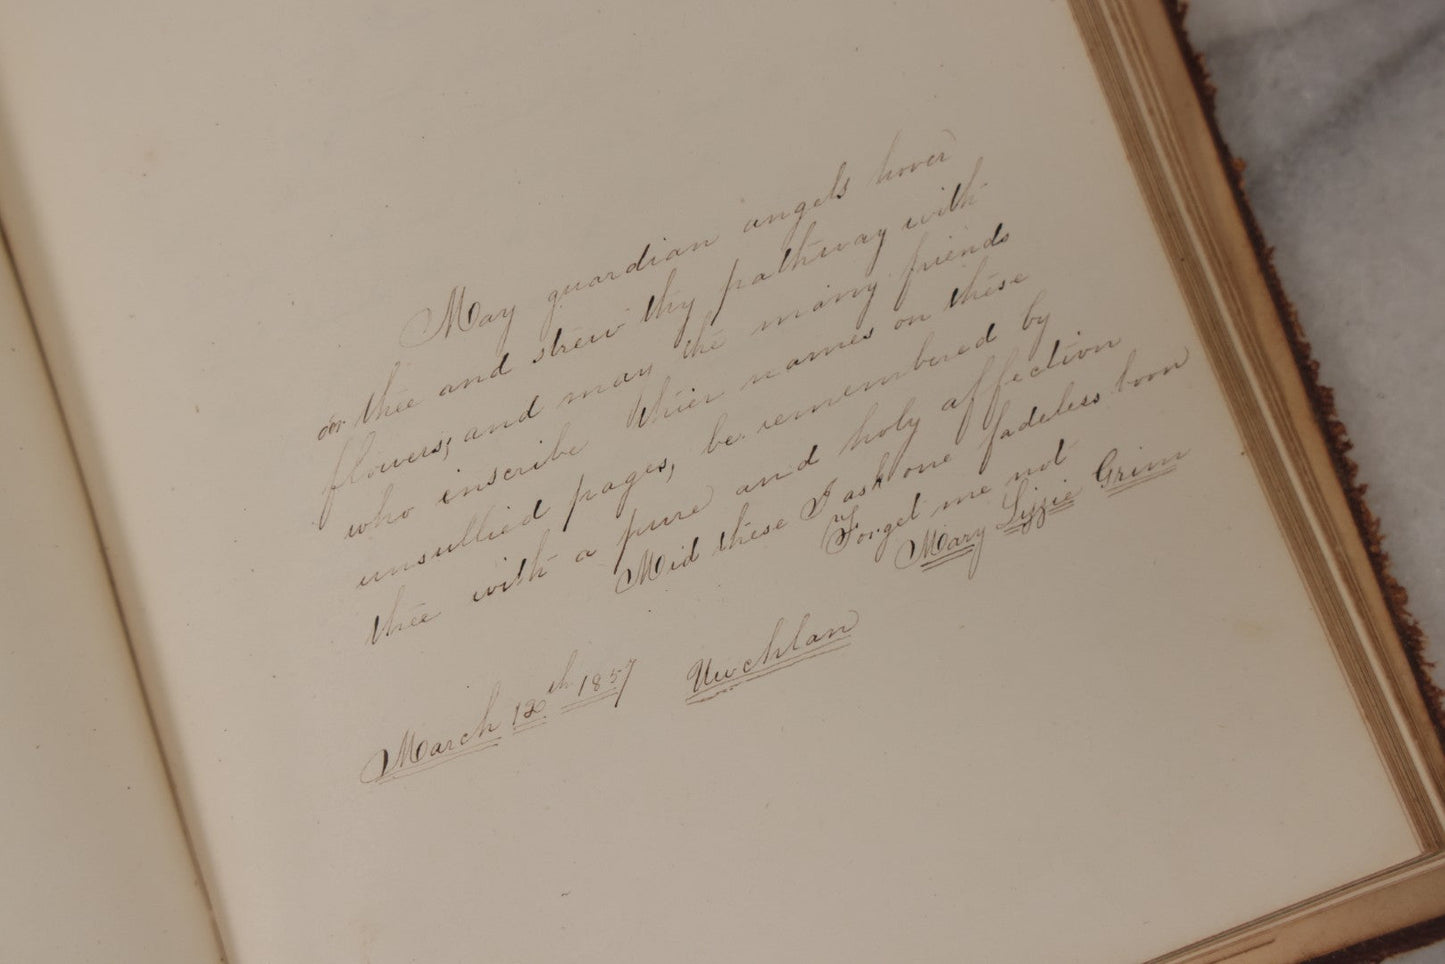 May guardian angels hover
o'er thee and strew thy pathway with
flowers; and may the many friends
who inscribe thier names on these
unsullied pages, be remembered by
thee with a pure and holy affection
Mid these I ask one fadeless boon
Forget me not
Mary Lizzie Grim
March 12th 1857 Uwchlan